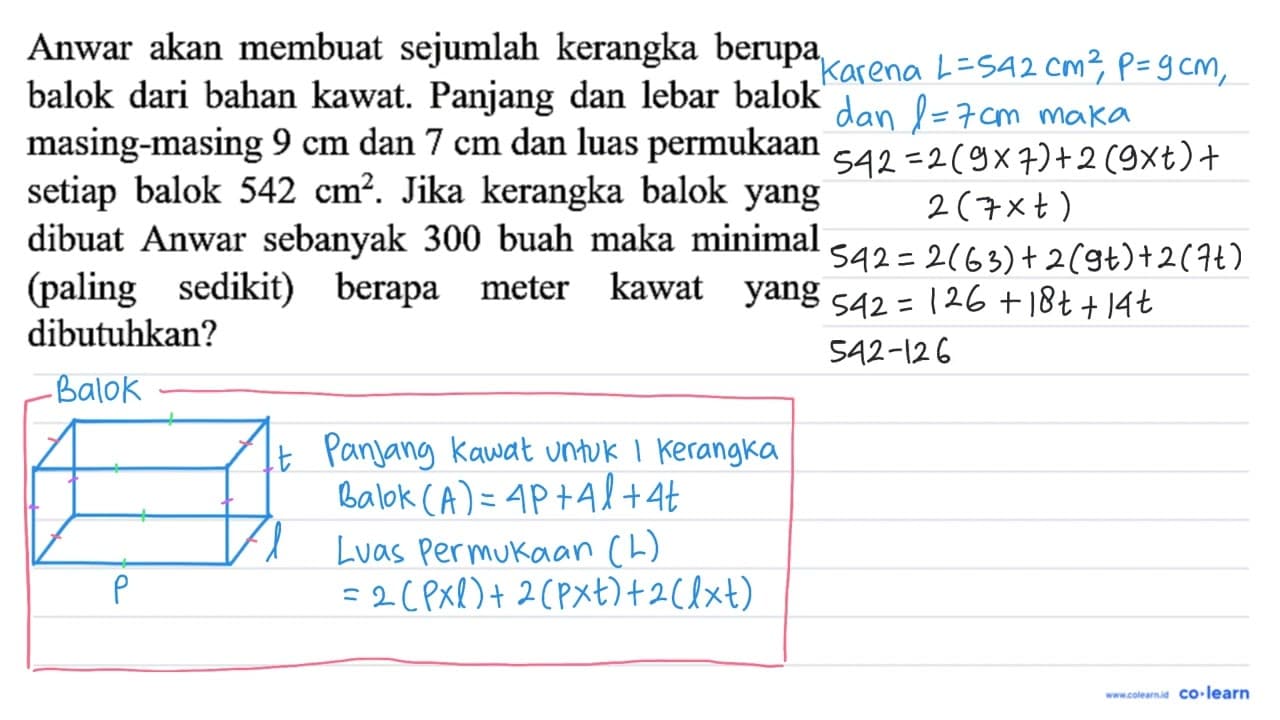 Anwar akan membuat sejumlah kerangka berupa
balok dari bahan kawat. Panjang dan lebar balok
masing-masing 9 cm dan 7 cm dan luas permukaan
setiap balok 542 cm². Jika kerangka balok yang
dibuat Anwar sebanyak 300 buah maka minimal
(paling sedikit) berapa meter kawat yang
dibutuhkan?
Karena L=542 cm², P=9cm,
dan l=7cm maka
542 =2(9×7)+2(9×t)+
2(7×t)
542=2(63)+2(9t)+2(7t)
542 = 126 +18t+14t
542-126
Balok
t
l
P
Panjang Kawat untuk 1 Kerangka
Balok (A) = 4P+4l+4t
Luas Permukaan (L)
= 2(P×l)+ 2(P×t)+2(l×t)
www.colearn.id co·learn